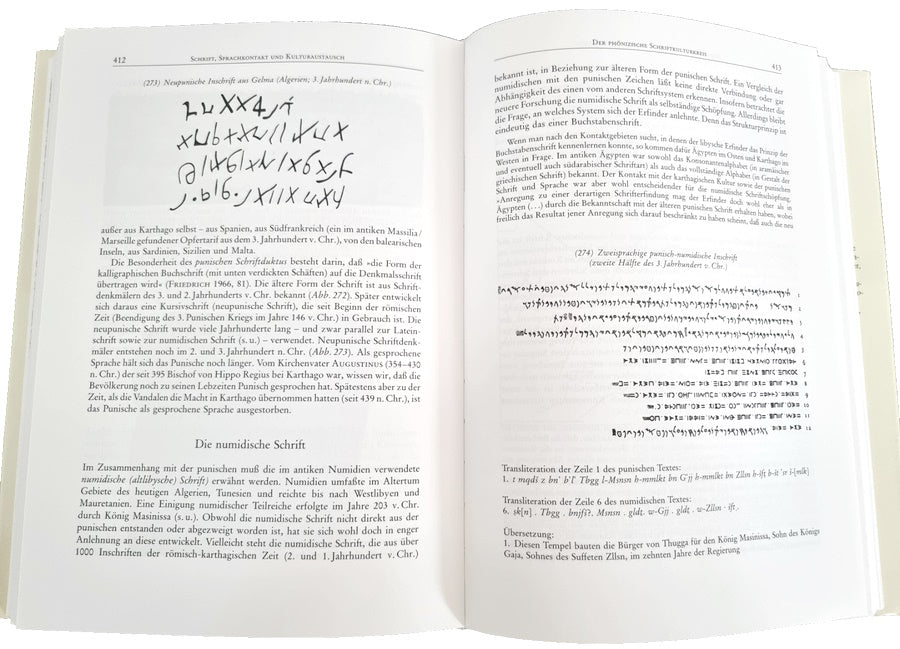 412
SCHRIFT, SPRACHKONTAKT UND KULTURAUSTAUSCH
(273) Neupunische Inschrift aus Gelma (Algerien; 3. Jahrhundert n. Chr.)
außer aus Karthago selbst – aus Spanien, aus Südfrankreich (ein im antiken Massilia/
Marseille gefundener Opfertarif aus dem 3. Jahrhundert v. Chr.), von den balearischen
Inseln, aus Sardinien, Sizilien und Malta.
Die Besonderheit des punischen Schriftduktus besteht darin, daß »die Form der
kalligraphischen Buchschrift (mit unten verdickten Schäften) auf die Denkmalsschrift
übertragen wird« (FRIEDRICH 1966, 81). Die ältere Form der Schrift ist aus Schrift-
denkmälern des 3. und 2. Jahrhunderts v. Chr. bekannt (Abb. 272). Später entwickelt
sich daraus eine Kursivschrift (neupunische Schrift), die seit Beginn der römischen
Zeit (Beendigung des 3. Punischen Kriegs im Jahre 146 v. Chr.) in Gebrauch ist. Die
neupunische Schrift wurde viele Jahrhunderte lang – und zwar parallel zur Latein-
schrift sowie zur numidischen Schrift (s. u.) – verwendet. Neupunische Schriftdenk-
mäler entstehen noch im 2. und 3. Jahrhundert n. Chr. (Abb. 273). Als gesprochene
Sprache hält sich das Punische noch länger. Vom Kirchenvater AUGUSTINUS (354–430
n. Chr.) der seit 395 Bischof von Hippo Regius bei Karthago war, wissen wir, daß die
Bevölkerung noch zu seinen Lebzeiten Punisch gesprochen hat. Spätestens aber zu der
Zeit, als die Vandalen die Macht in Karthago übernommen hatten (seit 439 n. Chr.), ist
das Punische als gesprochene Sprache ausgestorben.
Die numidische Schrift
Im Zusammenhang mit der punischen muß die im antiken Numidien verwendete
numidische (altlibysche) Schrift) erwähnt werden. Numidien umfaßte im Altertum
Gebiete des heutigen Algerien, Tunesien und reichte bis nach Westlibyen und
Mauretanien. Eine Einigung numidischer Teilreiche erfolgte im Jahre 203 v. Chr.
durch König Masinissa (s. u.). Obwohl die numidische Schrift nicht direkt aus der
punischen entstanden oder abgezweigt worden ist, hat sie sich wohl doch in enger
Anlehnung an diese entwickelt. Vielleicht steht die numidische Schrift, die aus über
1000 Inschriften der römisch-karthagischen Zeit (2. und 1. Jahrhundert v. Chr.)
DER PHÖNIZISCHE SCHRIFTKULTURKREIS
413
bekannt ist, in Beziehung zur älteren Form der punischen Schrift. Ein Vergleich der
numidischen mit den punischen Zeichen läßt keine direkte Verbindung oder gar
Abhängigkeit des einen vom anderen Schriftsystem erkennen. Insofern betrachtet die
neuere Forschung die numidische Schrift als selbständige Schöpfung. Allerdings bleibt
die Frage, an welches System sich der Erfinder anlehnte. Denn das Strukturprinzip ist
eindeutig das einer Buchstabenschrift.
Wenn man nach den Kontaktgebieten sucht, in denen der libysche Erfinder das Prinzip der
Buchstabenschrift kennenlernen konnte, so kommen dafür Ägypten im Osten und Karthago im
Westen in Frage. Im antiken Ägypten war sowohl das Konsonantenalphabet (in aramäischer
und eventuell auch südarabischer Schriftart) als auch das vollständige Alphabet (in Gestalt der
griechischen Schrift) bekannt. Der Kontakt mit der karthagischen Kultur sowie der punischen
Schrift und Sprache war aber wohl entscheidender für die numidische Schriftschöpfung.
»Anregung zu einer derartigen Schrifterfindung mag der Erfinder doch wohl eher als in
Ägypten (...) durch die Bekanntschaft mit der älteren punischen Schrift erhalten haben, wobei
freilich das Resultat jener Anregung sich darauf beschränkt zu haben scheint, daß auch die neu
(274) Zweisprachige punisch-numidische Inschrift
(zweite Hälfte des 3. Jahrhundert v. Chr.)
1
2
3
4
5
6
7
8
9
10
11
12
Transliteration der Zeile 1 des punischen Textes:
1. t mqdš z bn' b'l' Tbgg l-Msnsn h-mmlkt bn G'jj h-mmlkt bn Zllsn h-šfṭ b-št 'sr š-[mlk]
Transliteration der Zeile 6 des numidischen Textes:
6. sk[n] . Tbgg . bnjfš?. Msnsn . gldt . w-Gjj . gldt . w-Zllsn . šft .
Übersetzung:
1. Diesen Tempel bauten die Bürger von Thugga für den König Masinissa, Sohn des Königs
Gaja, Sohnes des Suffeten Zllsn, im zehnten Jahre der Regierung